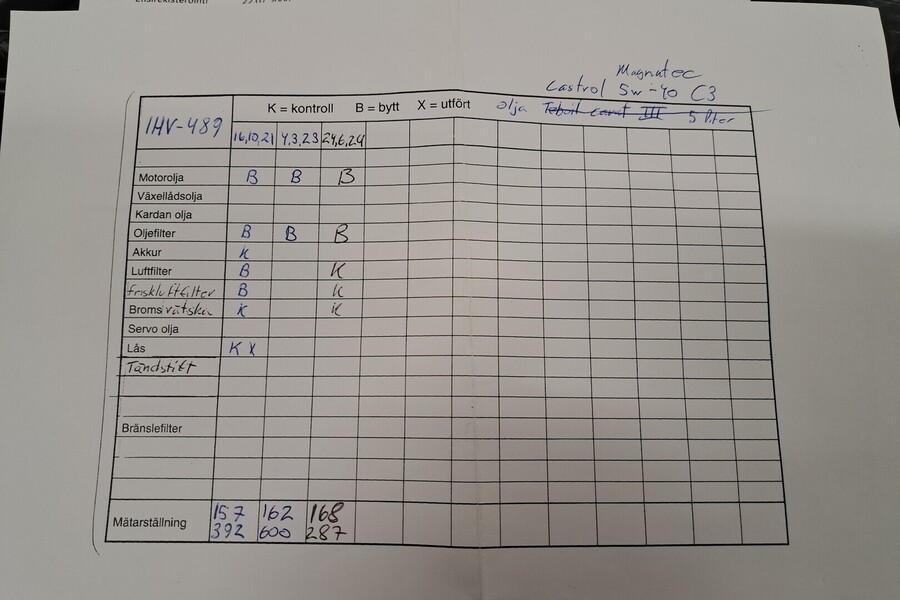 Magnatec
Castrol 5w-40 C3
K = kontroll B = bytt X = utfört olja III 5 liter
IHV-489
16,10,21 4,3,23 24,6,24
Motorolja B B B
Växellådsolja
Kardan olja
Oljefilter B B B
Akkur K
Luftfilter B K
friskluftfilter B K
Bromsvätska K K
Servo olja
Lås K X
Tändstift
Bränslefilter
Mätarställning 157 392 162 600 168 287